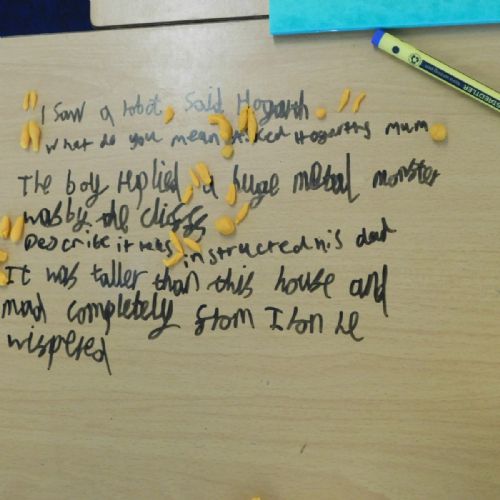 "I saw a robot, said Hogarth."
"What do you mean?" Asked Hogarths mum.
The boy replied, "a huge metal monster
was by the cliffs.
"Describe it" instructed his dad
It was taller than this house and
mad completely from Iron he
wispered
STAEDTLER